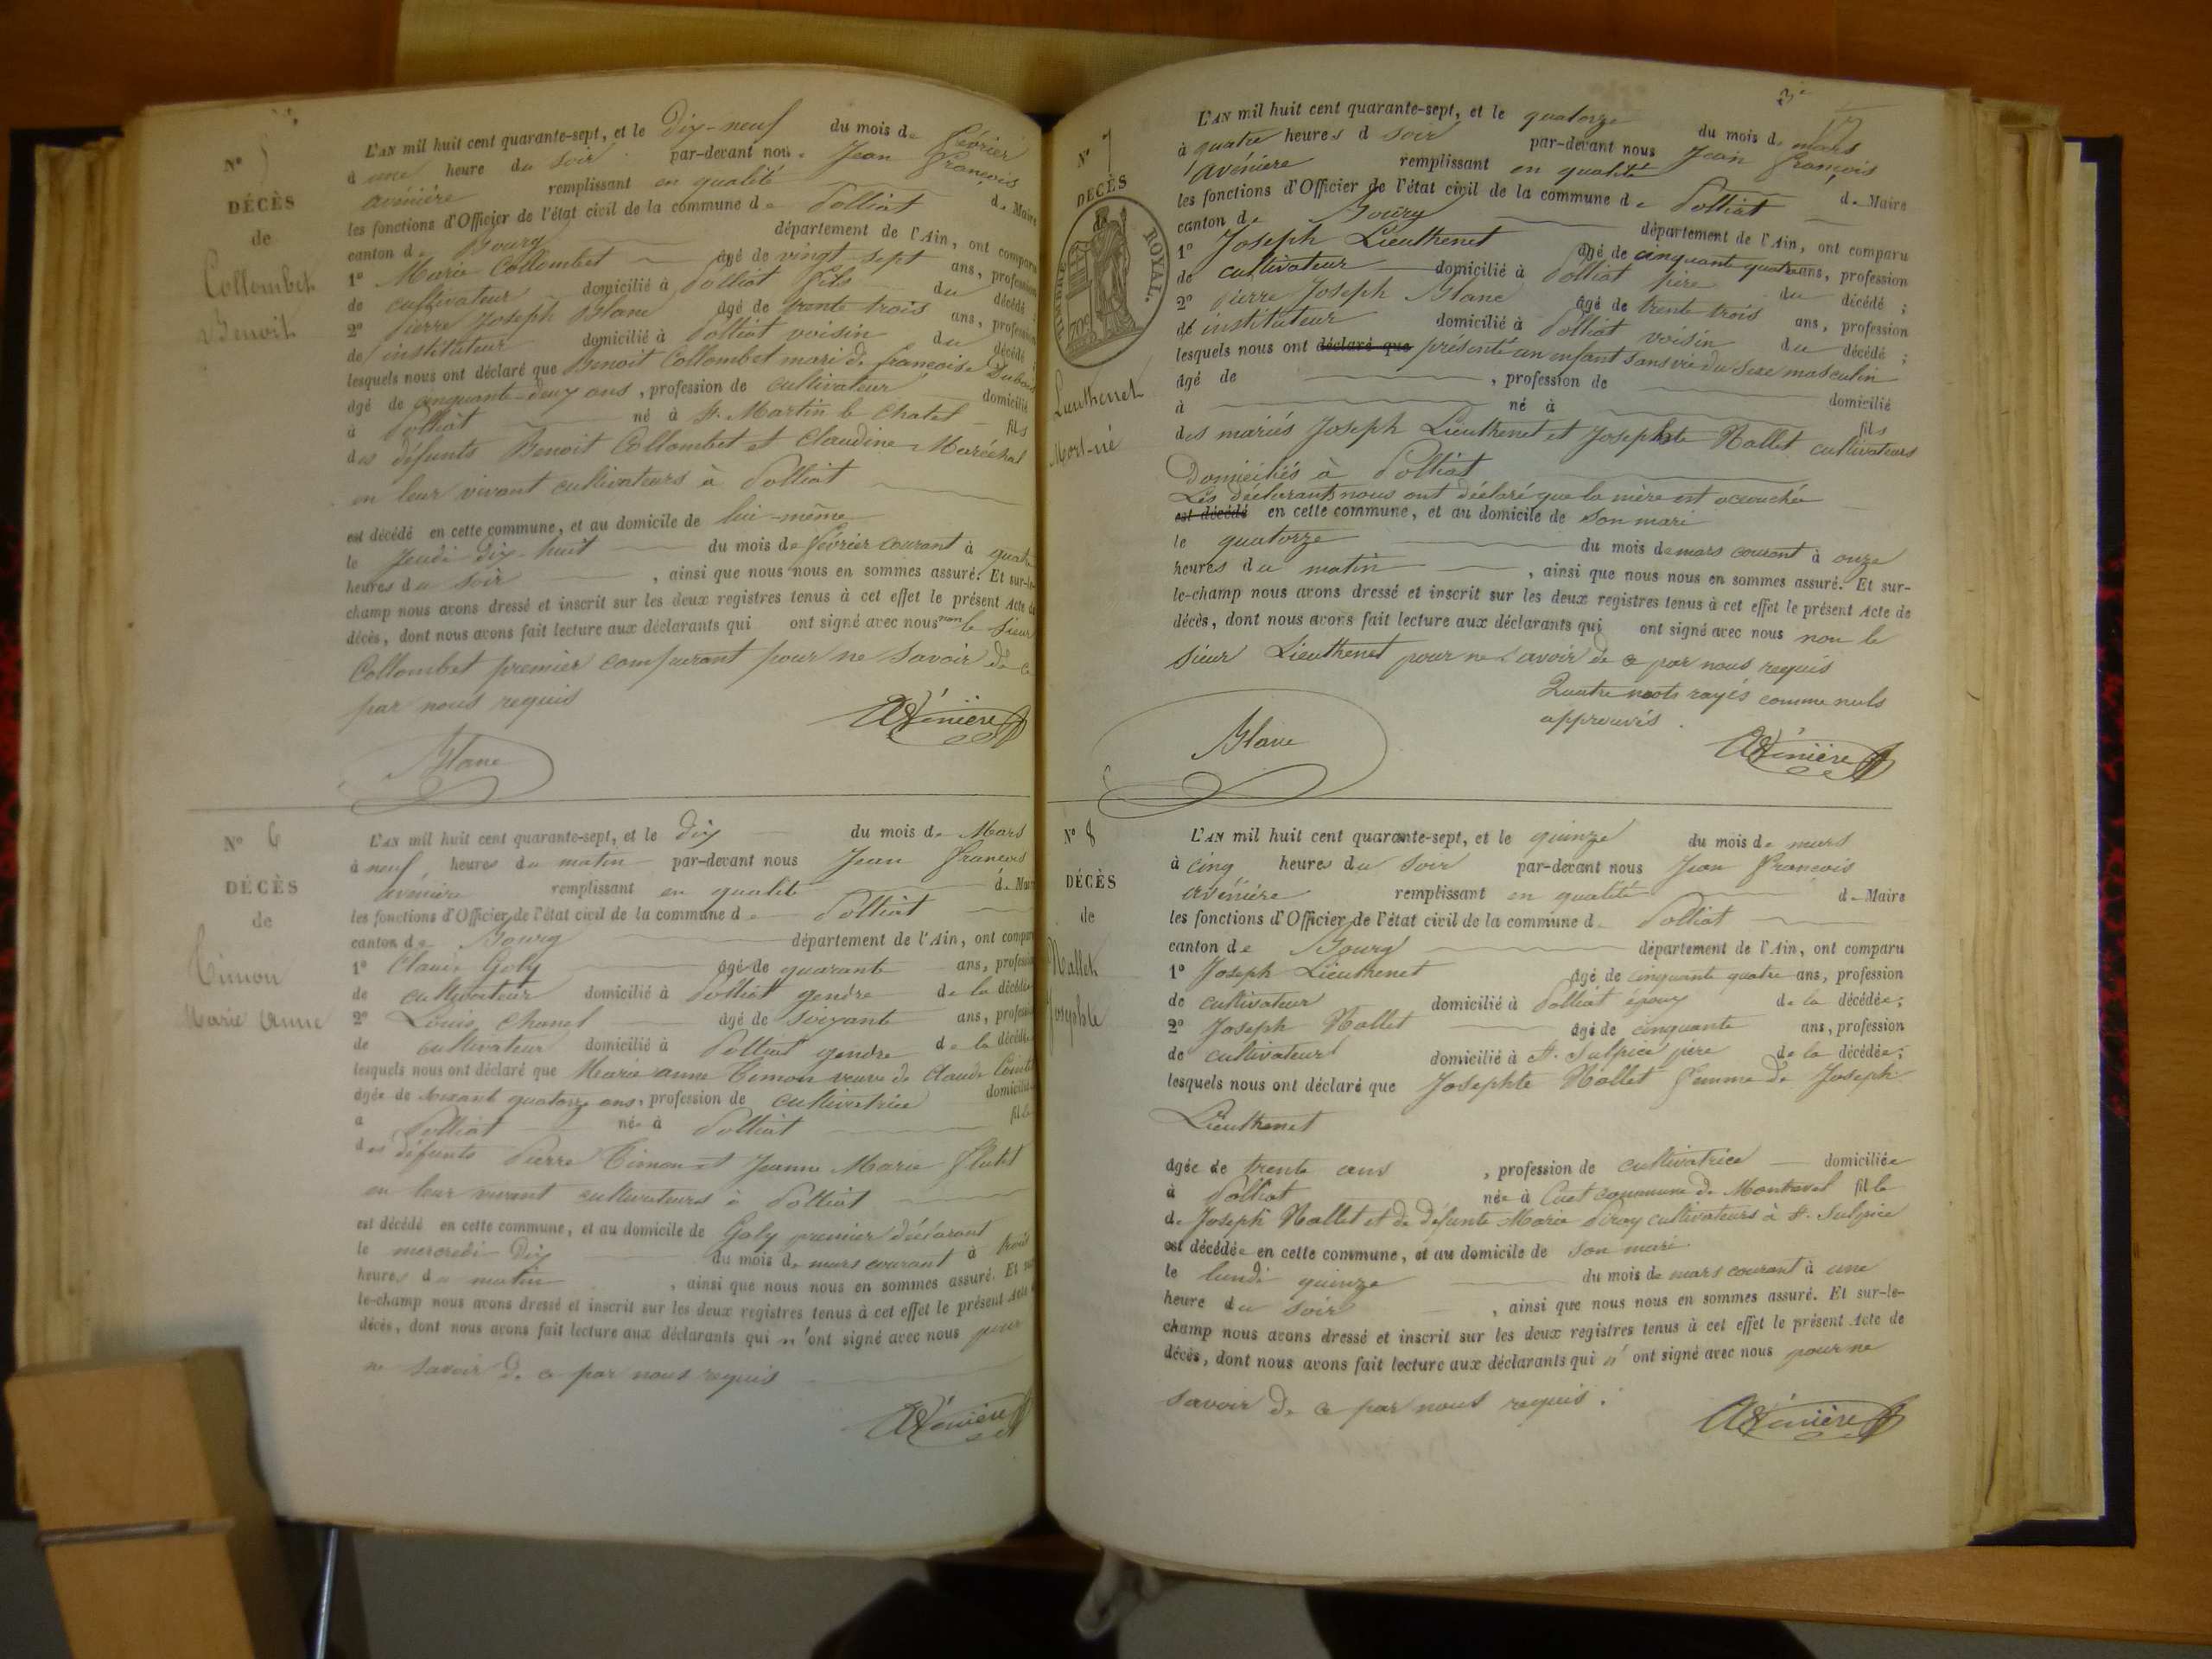 N° 5
DÉCÈS
de
Collombet
Benoit
L'AN mil huit cent quarante-sept, et le dix-neuf du mois de février
à une heure du soir par-devant nous Jean François
avénière remplissant en qualité de Maire
les fonctions d'Officier de l'état civil de la commune de Polliat
canton de Bourg département de l'Ain, ont comparu
1° Marie Collombet âgé de vingt-sept ans, profession
de cultivateur domicilié à Polliat fils du décédé
2° Pierre Joseph Blanc âgé de trente trois ans, profession
de instituteur domicilié à Polliat voisin du décédé
lesquels nous ont déclaré que Benoit Collombet mari de françoise Dubois
âgé de cinquante-deux ans, profession de cultivateur domicilié
à Polliat né à St. Martin le Chatel fils
des défunts Benoit Collombet et Claudine Maréchal
en leur vivant cultivateurs à Polliat
est décédé en cette commune, et au domicile de lui-même
le Jeudi dix-huit du mois de février courant à quatre
heures du soir, ainsi que nous nous en sommes assuré. Et sur-le-
champ nous avons dressé et inscrit sur les deux registres tenus à cet effet le présent Acte de
décès, dont nous avons fait lecture aux déclarants qui ont signé avec nous non le Sieur
Collombet premier comparant pour ne savoir de ce
par nous requis
Avénière
Blanc
N° 6
DÉCÈS
de
Timon
Marie Anne
L'AN mil huit cent quarante-sept, et le dix du mois de Mars
à neuf heures du matin par-devant nous Jean françois
avénière remplissant en qualité de Maire
les fonctions d'Officier de l'état civil de la commune de Polliat
canton de Bourg département de l'Ain, ont comparu
1° Goly âgé de quarante ans, profession
de cultivateur domicilié à Polliat gendre de la décédée
2° Louis Chanel âgé de soixante ans, profession
de cultivateur domicilié à Polliat gendre de la décédée
lesquels nous ont déclaré que Marie anne Timon veuve de Claude
âgée de soixante quatorze ans, profession de cultivatrice domiciliée
à Polliat née à Polliat fille
des défunts Pierre Timon et Jeanne Marie
en leur vivant cultivateurs à Polliat
est décédé en cette commune, et au domicile de Goly premier déclarant
le mercredi dix du mois de mars courant à trois
heures du matin, ainsi que nous nous en sommes assuré. Et sur-
le-champ nous avons dressé et inscrit sur les deux registres tenus à cet effet le présent Acte de
décès, dont nous avons fait lecture aux déclarants qui n'ont signé avec nous pour
ne savoir de ce par nous requis
Avénière
3e
N° 7
DÉCÈS
de
TIMBRE ROYAL.
70c
Lieuthenet
Mort-né
L'AN mil huit cent quarante-sept, et le quatorze du mois de mars
à quatre heures d soir par-devant nous Jean françois
avénière remplissant en qualité de Maire
les fonctions d'Officier de l'état civil de la commune de Polliat
canton de Bourg département de l'Ain, ont comparu
1° Joseph Lieuthenet âgé de cinquante quatre ans, profession
de cultivateur domicilié à Polliat père du décédé ;
2° Pierre Joseph Blanc âgé de trente trois ans, profession
de instituteur domicilié à Polliat voisin du décédé ;
lesquels nous ont déclaré que présenté un enfant sans vie du sexe masculin
âgé de , profession de domicilié
à né à fils
des mariés Joseph Lieuthenet et Josephte Nallet cultivateurs
Domiciliés à Polliat
Les déclarants nous ont déclaré que la mère est accouchée
est décédé en cette commune, et au domicile de son mari
le quatorze du mois de mars courant à onze
heures du matin, ainsi que nous nous en sommes assuré. Et sur-
le-champ nous avons dressé et inscrit sur les deux registres tenus à cet effet le présent Acte de
décès, dont nous avons fait lecture aux déclarants qui ont signé avec nous non le
sieur Lieuthenet pour ne savoir de ce par nous requis
Quatre mots rayés comme nuls
approuvés.
Avénière
Blanc
N° 8
DÉCÈS
de
Nallet
Josephte
L'AN mil huit cent quarante-sept, et le quinze du mois de mars
à cinq heures du soir par-devant nous Jean françois
avénière remplissant en qualité de Maire
les fonctions d'Officier de l'état civil de la commune de Polliat
canton de Bourg département de l'Ain, ont comparu
1° Joseph Lieuthenet âgé de cinquante quatre ans, profession
de cultivateur domicilié à Polliat époux de la décédée ;
2° Joseph Nallet âgé de cinquante ans, profession
de cultivateur domicilié à St. Sulpice père de la décédée ;
lesquels nous ont déclaré que Josephte Nallet femme de Joseph
Lieuthenet
âgée de trente ans, profession de cultivatrice domiciliée
à Polliat née à Cuet commune de Montrevel fille
de Joseph Nallet et de défunte Marie Piroy cultivateurs à St. Sulpice
est décédée en cette commune, et au domicile de son mari
le lundi quinze du mois de mars courant à une
heure du soir, ainsi que nous nous en sommes assuré. Et sur-le-
champ nous avons dressé et inscrit sur les deux registres tenus à cet effet le présent Acte de
décès, dont nous avons fait lecture aux déclarants qui n'ont signé avec nous pour ne
savoir de ce par nous requis.
Avénière